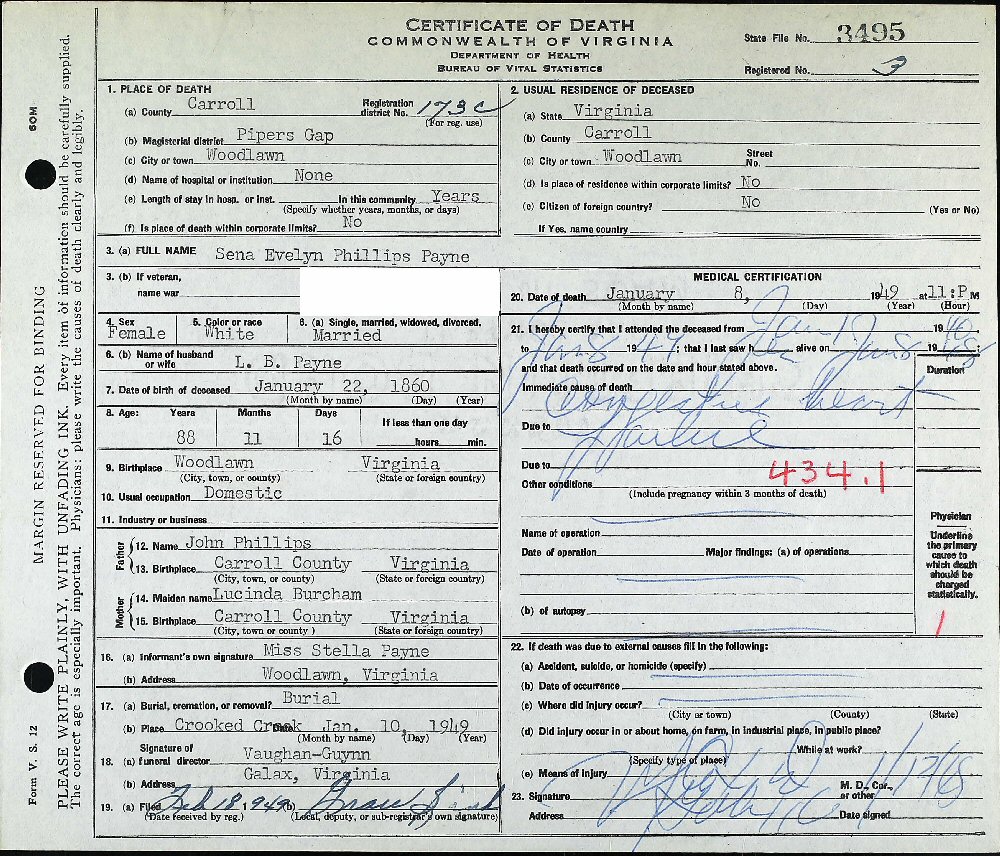 CERTIFICATE OF DEATH
COMMONWEALTH OF VIRGINIA
DEPARTMENT OF HEALTH
BUREAU OF VITAL STATISTICS
State File No. 3495
Registered No. 3
1. PLACE OF DEATH
(a) County Carroll Registration district No. 173C
(For reg. use)
(b) Magisterial district Pipers Gap
(c) City or town Woodlawn
(d) Name of hospital or institution None
(e) Length of stay in hosp. or inst. In this community Years
(Specify whether years, months, or days)
(f) Is place of death within corporate limits? No
2. USUAL RESIDENCE OF DECEASED
(a) State Virginia
(b) County Carroll
(c) City or town Woodlawn Street No.
(d) Is place of residence within corporate limits? No
(e) Citizen of foreign country? No (Yes or No)
If Yes, name country
3. (a) FULL NAME Sena Evelyn Phillips Payne
3. (b) If veteran,
name war
4. Sex Female
5. Color or race White
6. (a) Single, married, widowed, divorced. Married
6. (b) Name of husband or wife L. B. Payne
7. Date of birth of deceased January 22, 1860
(Month by name) (Day) (Year)
8. Age: Years Months Days If less than one day
88 11 16 hours min.
9. Birthplace Woodlawn Virginia
(City, town, or county) (State or foreign country)
10. Usual occupation Domestic
11. Industry or business
Father
12. Name John Phillips
13. Birthplace Carroll County Virginia
(City, town, or county) (State or foreign country)
Mother
14. Maiden name Lucinda Burcham
15. Birthplace Carroll County Virginia
(City, town or county ) (State or foreign country)
16. (a) Informant's own signature Miss Stella Payne
(b) Address Woodlawn, Virginia
17. (a) Burial, cremation, or removal? Burial
(b) Place Crooked Creek Jan. 10, 1949
(Month by name) (Day) (Year)
18. (a) Signature of funeral director Vaughan-Guynn
(b) Address Galax, Virginia
19. (a) Filed Feb 18, 1949 (b)
(Date received by reg.) (Local, deputy, or sub-registrar's own signature)
MEDICAL CERTIFICATION
20. Date of death January 8, 1949 at 11:P M
(Month by name) (Day) (Year) (Hour)
21. I hereby certify that I attended the deceased from Jan 19
to Jan 8 1949; that I last saw her alive on Jan 8 19
and that death occurred on the date and hour stated above.
Duration
Immediate cause of death
Congestive heart
Due to failure
Due to
434.1
Other conditions
(Include pregnancy within 3 months of death)
Name of operation
Date of operation Major findings: (a) of operations
(b) of autopsy
Physician
Underline the primary cause to which death should be charged statistically.
1
22. If death was due to external causes fill in the following:
(a) Accident, suicide, or homicide (specify)
(b) Date of occurrence
(c) Where did injury occur?
(City or town) (County) (State)
(d) Did injury occur in or about home, on farm, in industrial place, in public place?
While at work?
(Specify type of place)
(e) Means of injury
23. Signature M. D., Cor., or other
Address Date signed
60M
MARGIN RESERVED FOR BINDING
Form V. S. 12
PLEASE WRITE PLAINLY, WITH UNFADING INK. Every item of information should be carefully supplied.
The correct age is especially important. Physicians: please write the causes of death clearly and legibly.